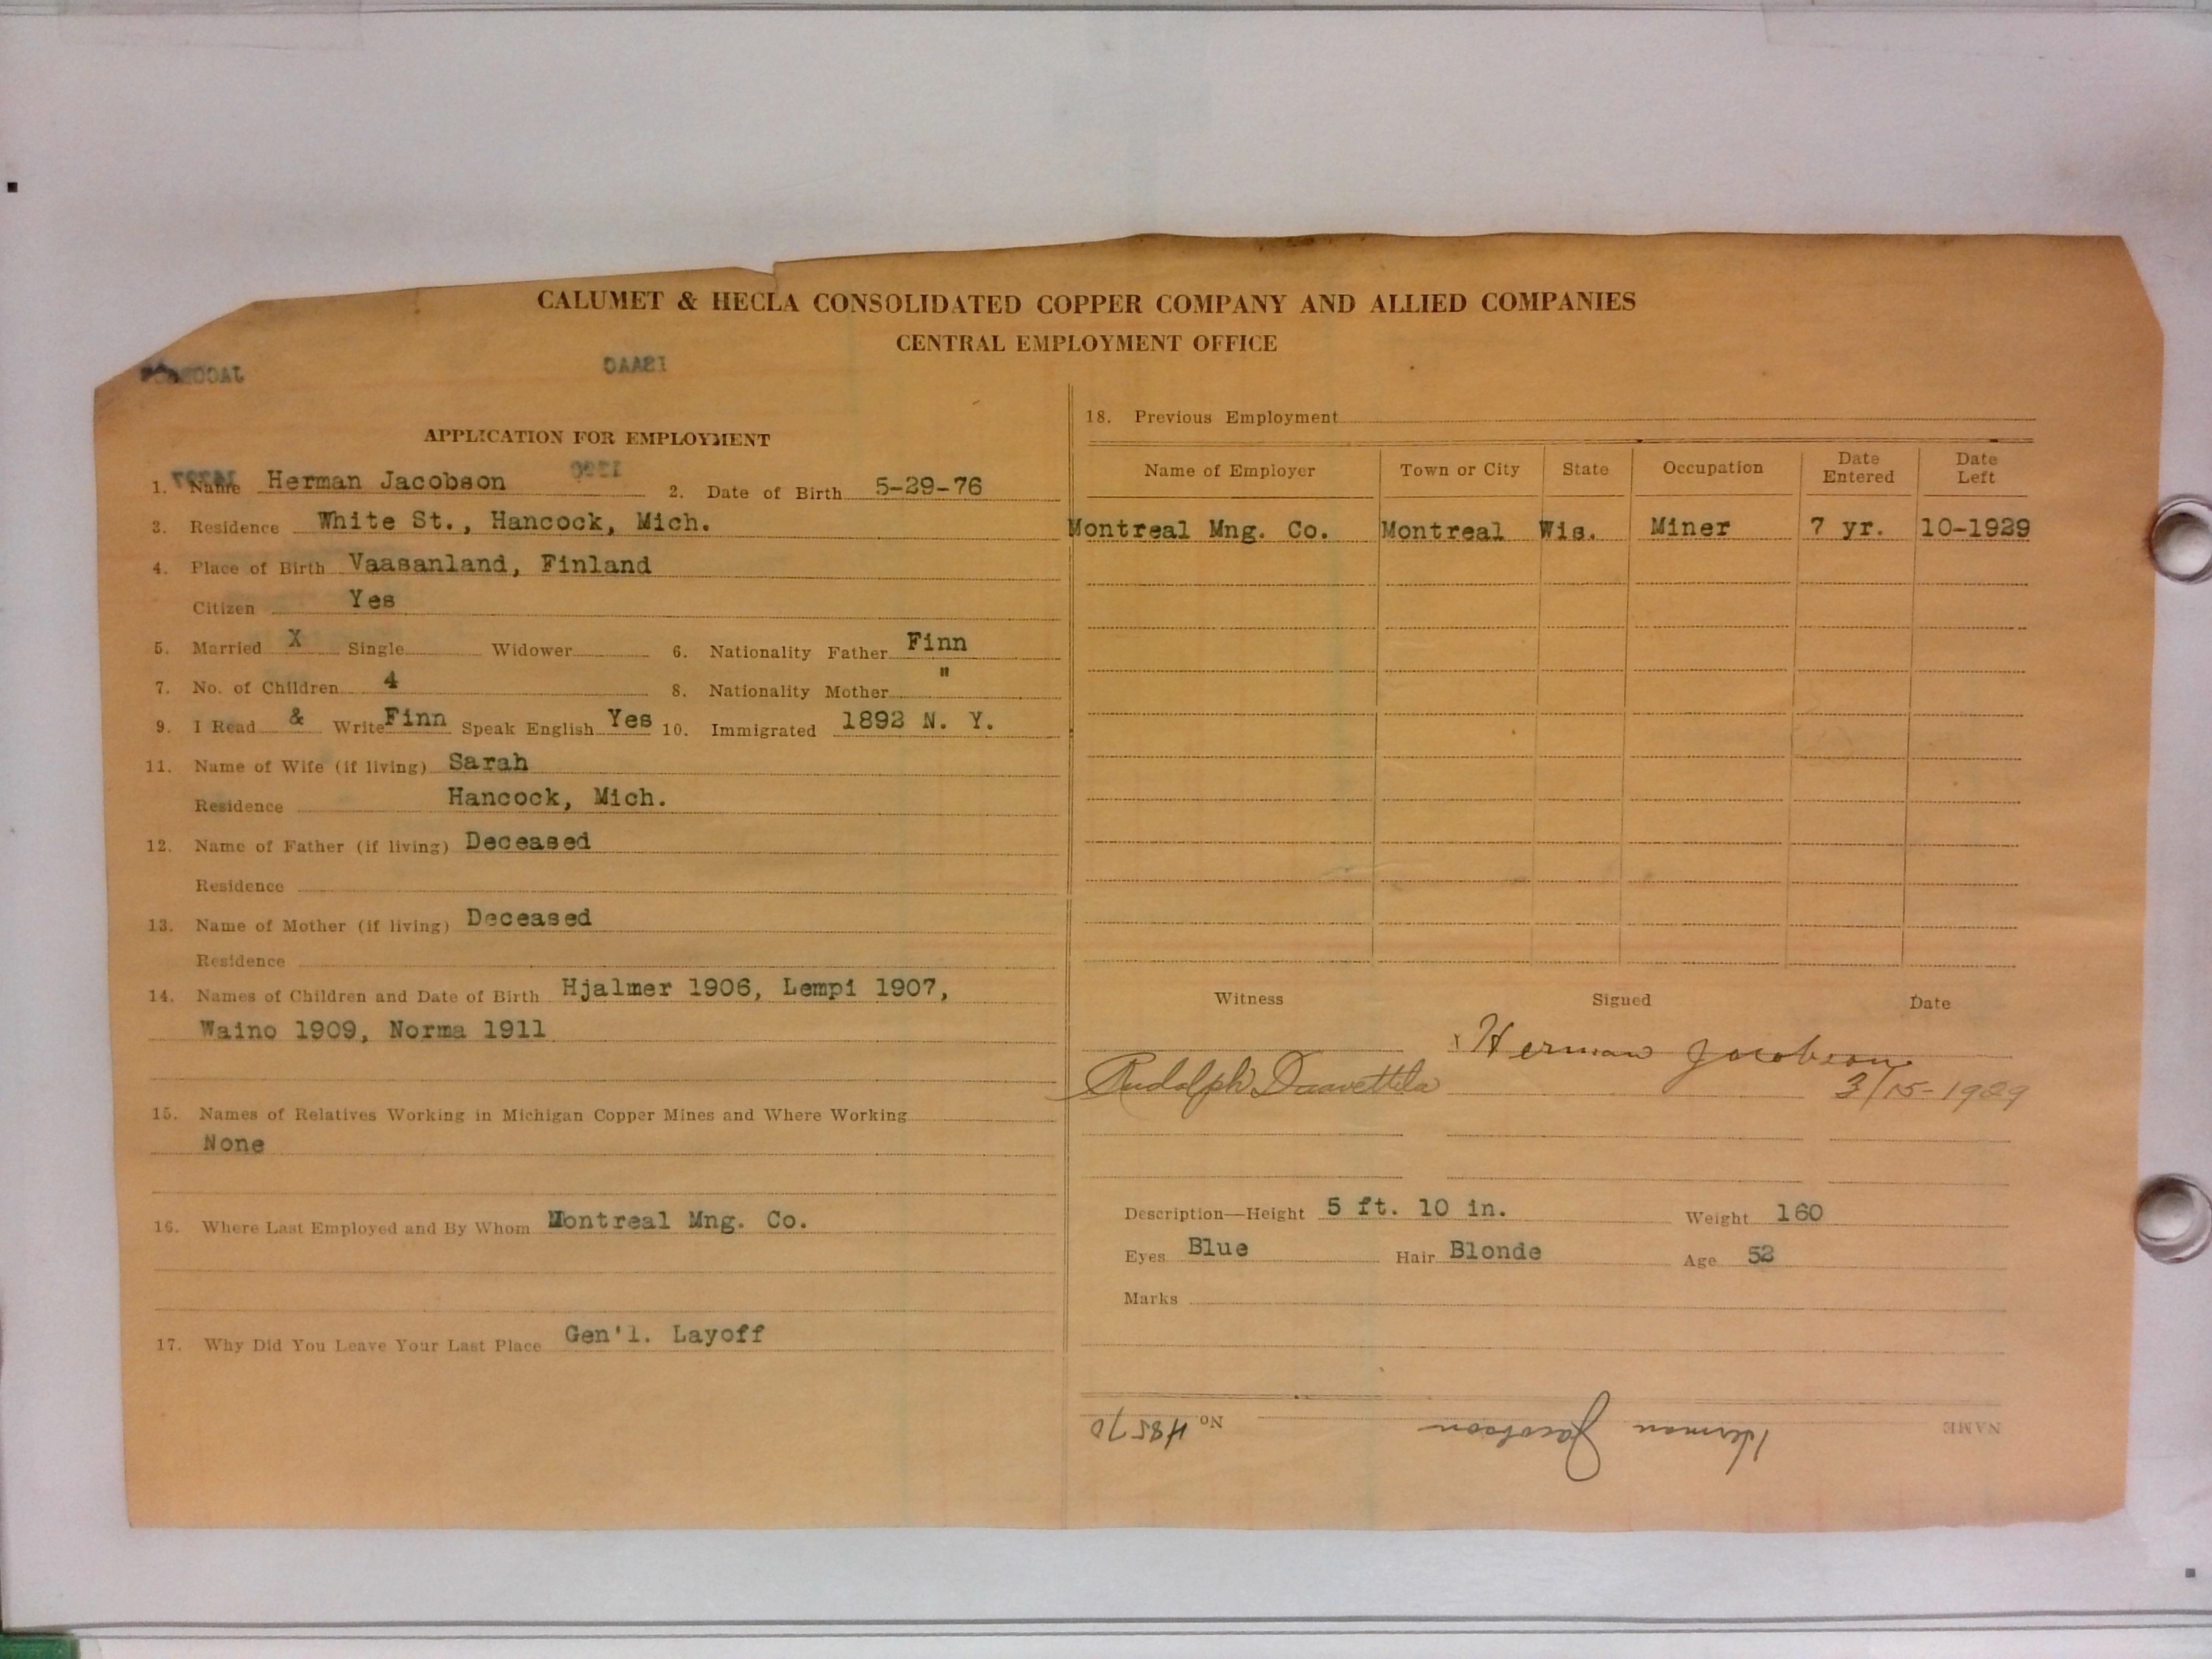 CALUMET & HECLA CONSOLIDATED COPPER COMPANY AND ALLIED COMPANIES
CENTRAL EMPLOYMENT OFFICE
ISAAC
APPLICATION FOR EMPLOYMENT
1. Name Herman Jacobson 2. Date of Birth 5-29-76
3. Residence White St., Hancock, Mich.
4. Place of Birth Vaasanland, Finland
Citizen Yes
5. Married X Single Widower 6. Nationality Father Finn
7. No. of Children 4 8. Nationality Mother "
9. I Read & Write Finn Speak English Yes 10. Immigrated 1892 N. Y.
11. Name of Wife (if living) Sarah
Residence Hancock, Mich.
12. Name of Father (if living) Deceased
Residence
13. Name of Mother (if living) Deceased
Residence
14. Names of Children and Date of Birth Hjalmer 1906, Lempi 1907,
Waino 1909, Norma 1911
15. Names of Relatives Working in Michigan Copper Mines and Where Working
None
16. Where Last Employed and By Whom Montreal Mng. Co.
17. Why Did You Leave Your Last Place Gen'l. Layoff
18. Previous Employment
Name of Employer Town or City State Occupation Date Entered Date Left
Montreal Mng. Co. Montreal Wis. Miner 7 yr. 10-1929
Witness Signed Date
x Herman Jacobson
Rudolph 3/15-1929
Description—Height 5 ft. 10 in. Weight 160
Eyes Blue Hair Blonde Age 52
Marks
NAME Herman Jacobson No. 48570